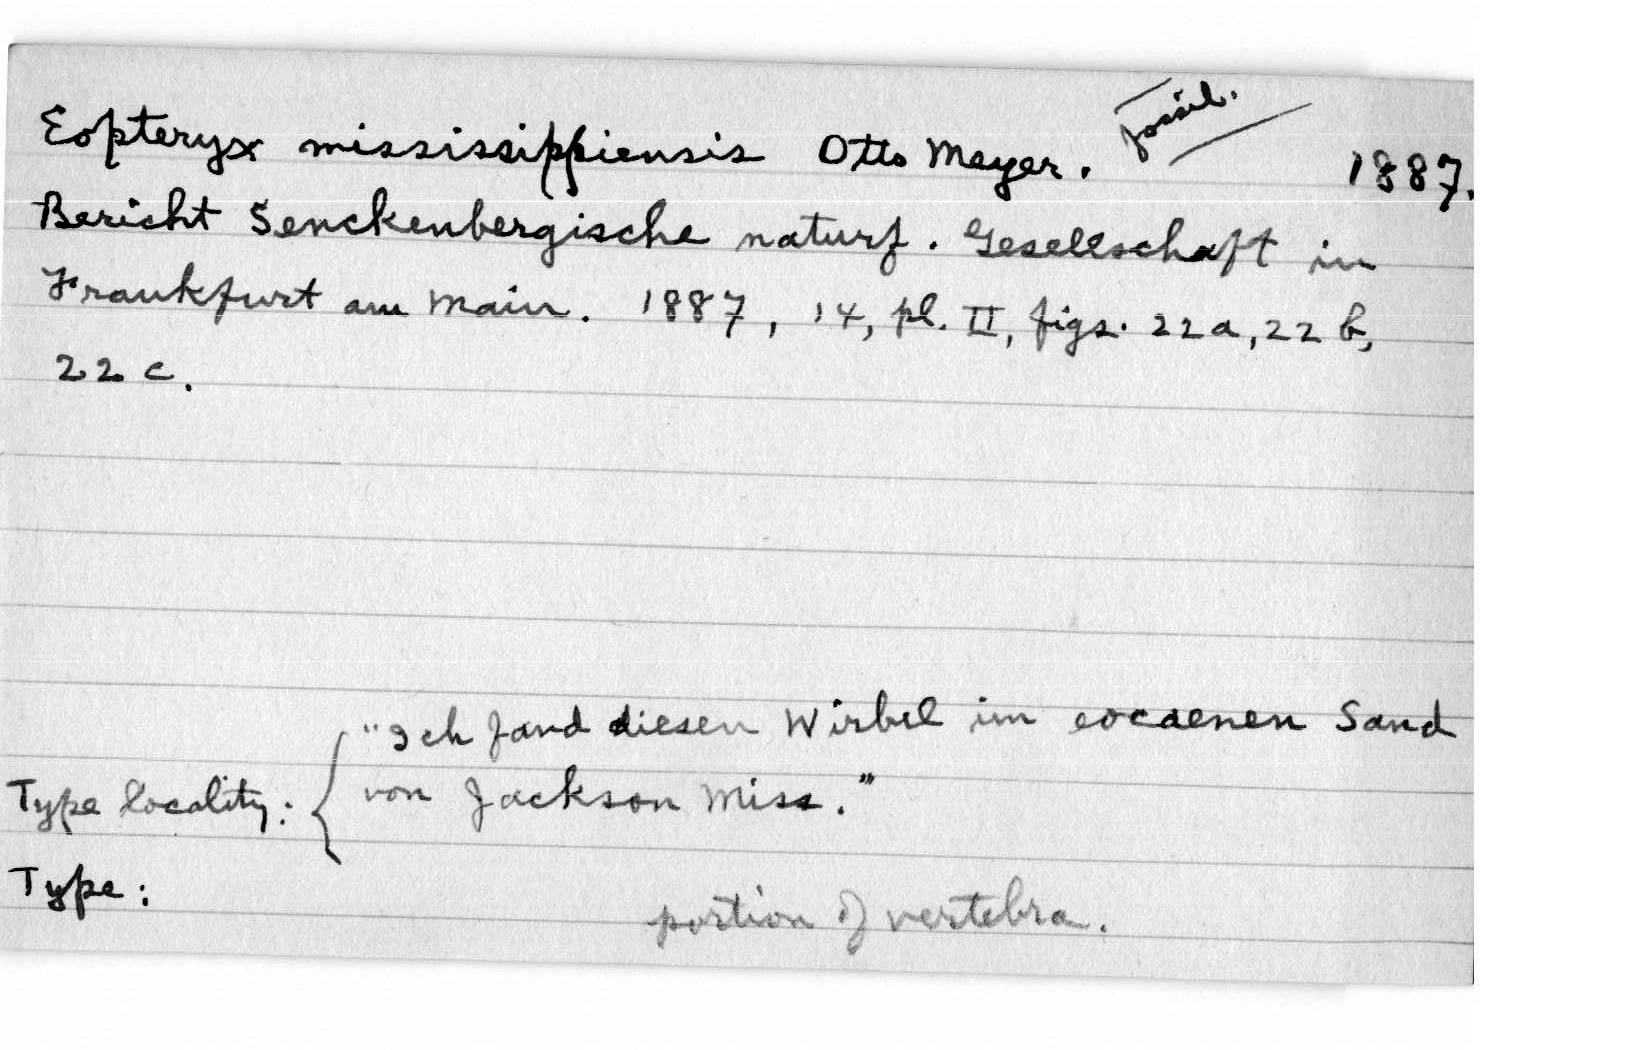 Eopteryx mississippiensis Otto Meyer. fossil. 1887.
Bericht Senckenbergische naturf. Gesellschaft in
Frankfurt am Main. 1887, 14, pl. II, figs. 22a, 22b,
22c.
"Ich fand diesen Wirbel im eocaenen Sand
Type locality: { von Jackson Miss."
Type:
portion of vertebra.